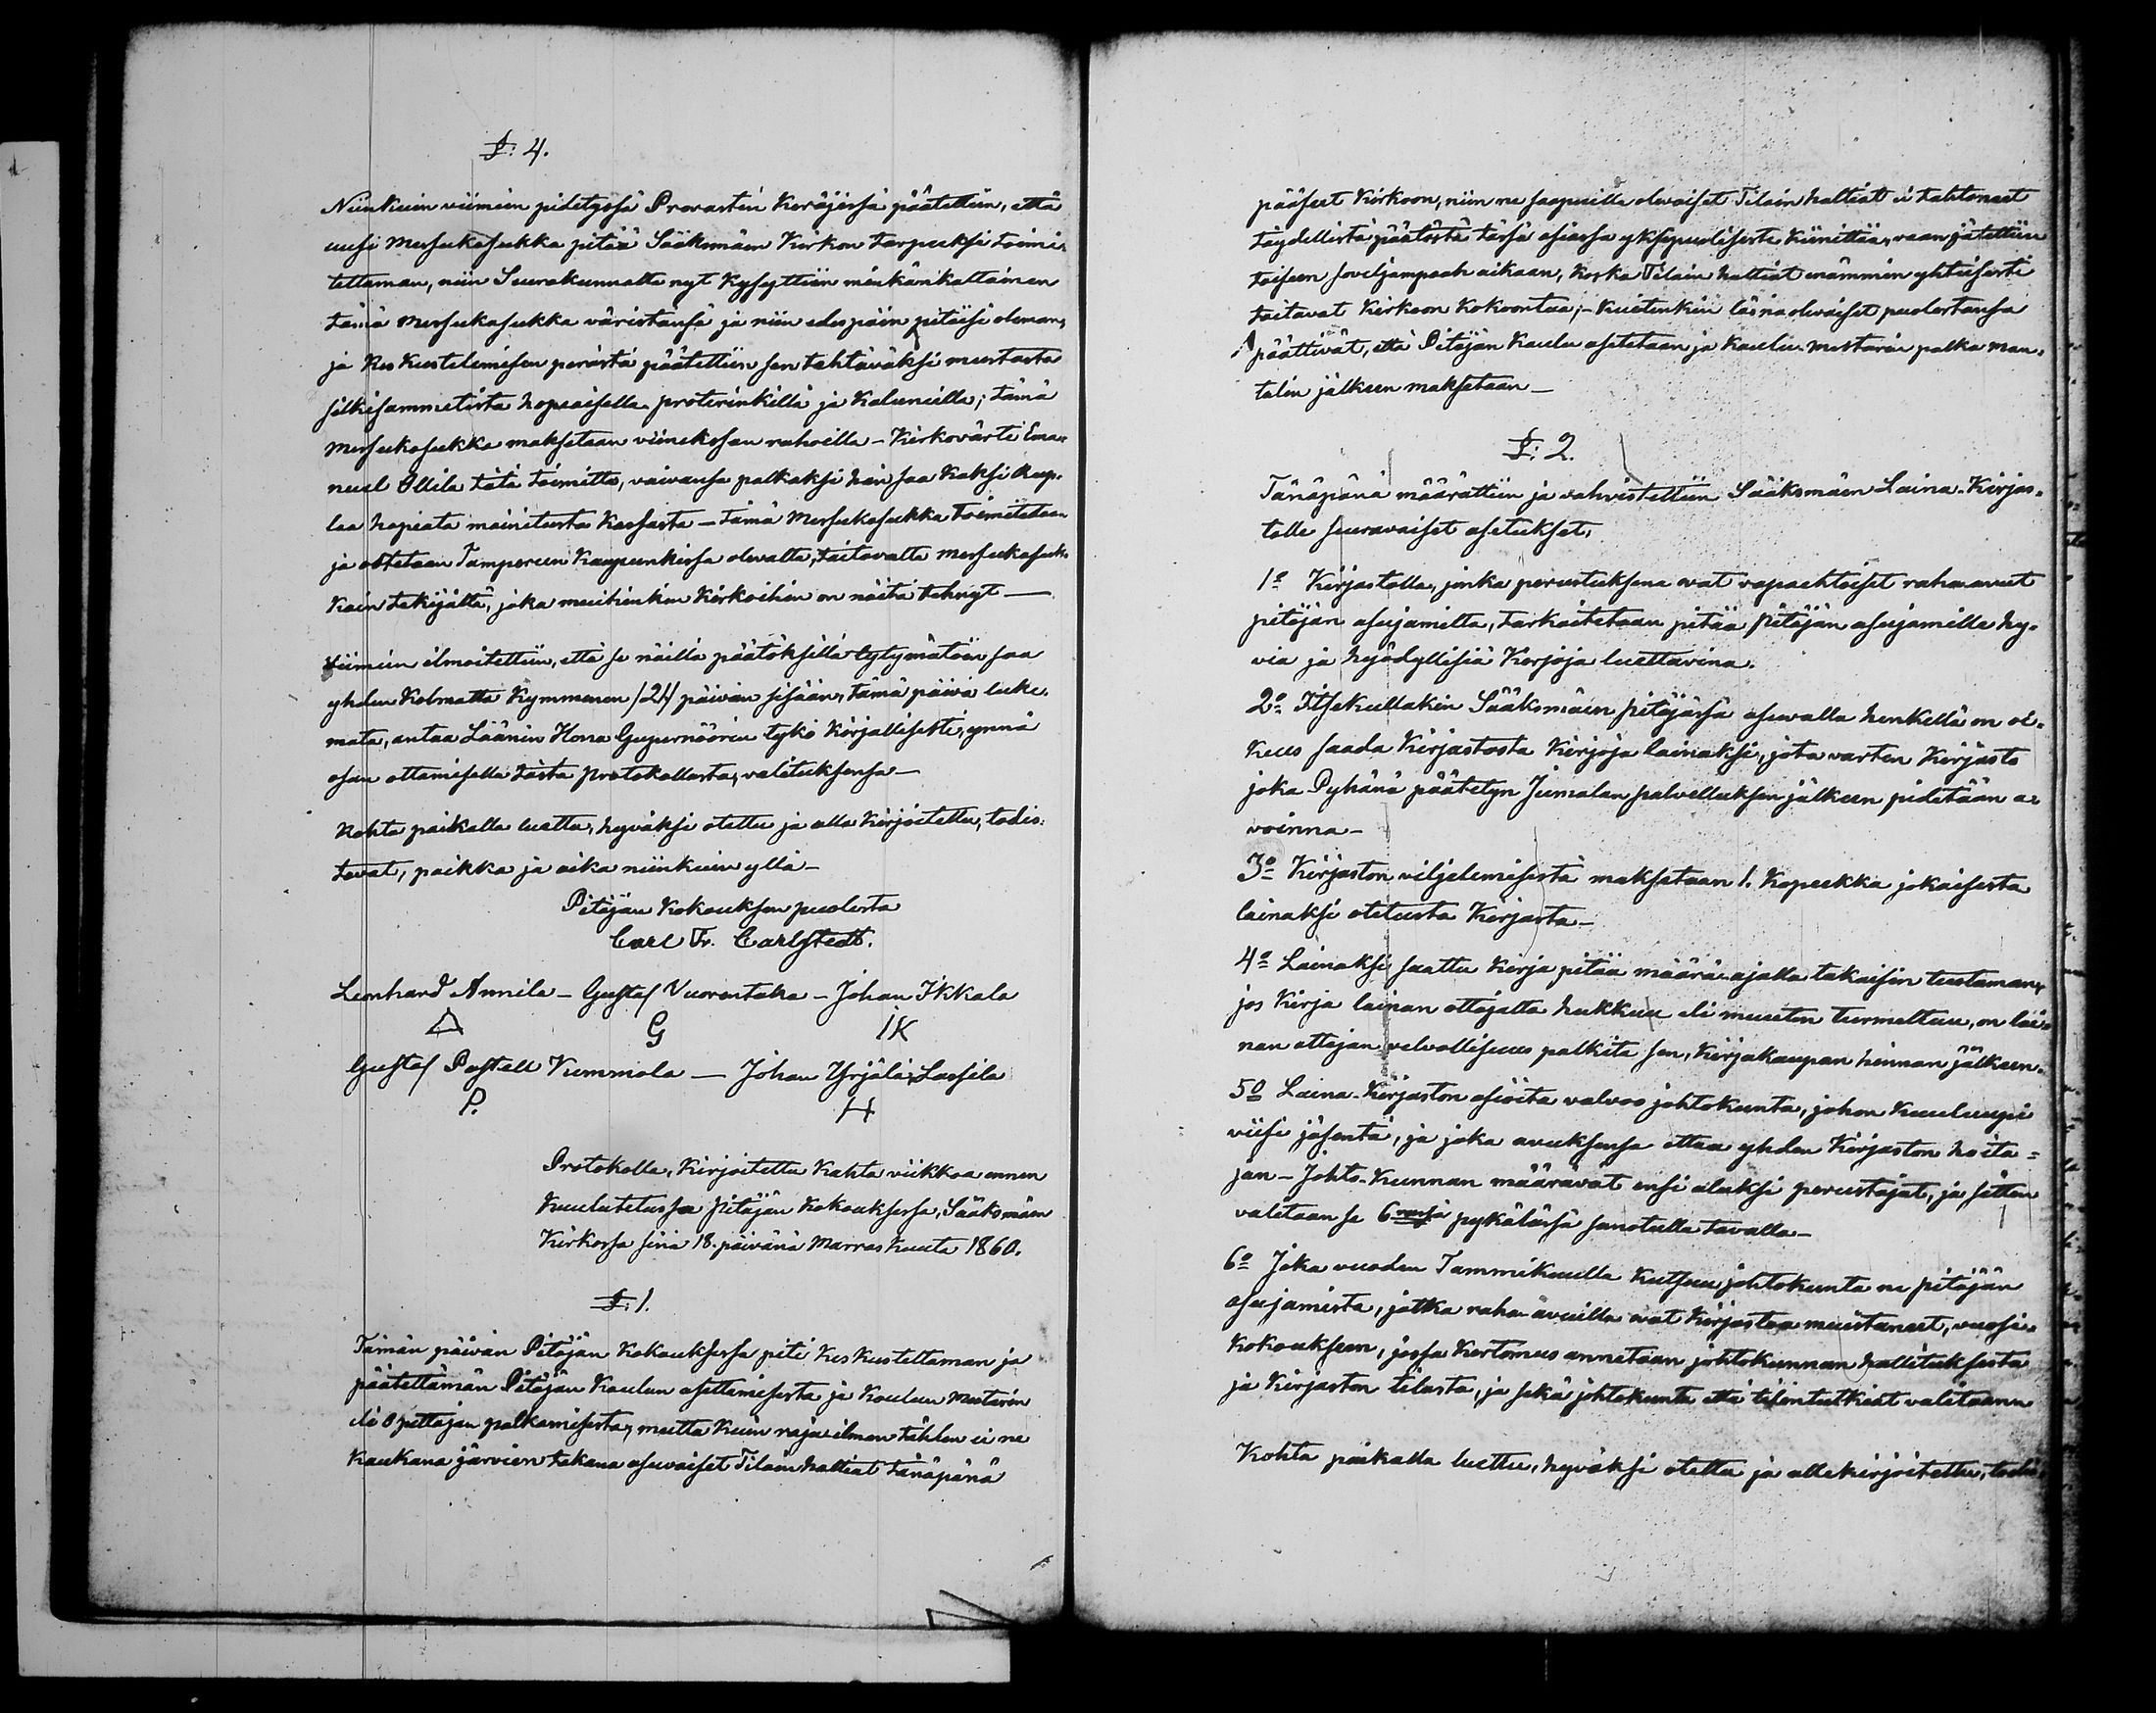 §: 4.
Niinkuin viimein pidetyssä Provastin Käräjissä päätettiin, että
uusi Messukasukka pitää Sääksmäen Kirkon tarpeeksi toimi-
tettaman, niin Seurakunnalta nyt kysyttiin minkänkaltainen
tämä Messukasukka väristänsä ja niin edespäin pitäisi oleman,
ja Keskustelemisen perästä päätettiin sen tehtäväksi mustasta
silkisammetista hopeaisella proterinkillä ja Kaluneilla; tämä
Messukasukka maksetaan viinakassan rahoilla - Kirkovärti Ema-
nuel Ollila tätä toimitta, vaivansa palkaksi hän saa Kaksi Rup-
laa hopiata mainitusta Kassasta - tämä Messukasukka toimitetaan
ja ostetaan Tampereen Kaupunkissa olevalta, taitavalta messukasuk-
kain tekijältä, joka muihinkin Kirkoihin on näitä tehnyt —
Viimein ilmoitettiin, että se näillä päätöksillä tytymätöin saa
yhden Kolmatta Kymmenen /21/ päivän sisään, tämä päivä luke-
mata, antaa Läänin Herra Guvernöörin tykö Kirjallisesti, ynnä
osan ottamisella tästä protokollasta, valituksensa —
Kohta paikalla luettu, hyväksi otettu ja alla Kirjoitettu, todis-
tavat, paikka ja aika niinkuin yllä —
Pitäjän Kokouksen puolesta
Carl Fr. Carlstedt.
Leonhard Annila - Gustaf Vuorentaka - Johan Ikkala
G IK
Gustaf Pastell Kummola — Johan Yrjälä Lassila
P. H
Protokolla, Kirjoitettu Kahta viikkoa ennen
Kuulutetussa Pitäjän Kokouksessa, Sääksmäen
Kirkossa sinä 18. päivänä Marraskuuta 1860.
§: 1.
Tämän päivän Pitäjän Kokouksessa piti Keskusteltaman ja
päätettämän Pitäjän Koulun asettamisesta ja Koulun Mestarin
eli Opettajan palkamisesta, mutta Kuin raju ilman tähden ei ne
Kaukana järvien takana asuvaiset Tilain haltiat tänäpänä
pääseet Kirkoon, niin ne saapuilla olevaiset Tilain haltiat ei tahtoneet
täydellistä päätöstä tässä asiassa yksipuolisesti Kiinittää, vaan jätettiin
toiseen soveljampaah aikaan, Koska Tilain haltiat enämmin yhteisesti
taitavat Kirkoon Kokoontua; - Kuitenkin läsnä olevaiset puolestansa
päättivät, että Pitäjän Koulu asetetaan ja Koulu-Mestarin palka man-
talin jälkeen maksetaan —
§: 2.
Tänäpänä määrättiin ja vahvistettiin Sääksmäen Laina-Kirjas-
tolle seuravaiset asetukset.
1º Kirjastolla, jonka perustuksena ovat vapaehtoiset raha-avut
pitäjän asujamilta, tarkoitetaan pitää Pitäjän asujamille hy-
viä ja hyödyllisiä Kirjoja luettavina.
2º Itsekullakin Sääksmäen Pitäjässä asuvalla henkellä on oi-
keus saada Kirjastosta Kirjoja lainaksi, jota varten Kirjasto
joka Pyhänä päätetyn Jumalan palvelluksen jälkeen pidetään a-
voinna —
3º Kirjaston viljelemisestä maksetaan 1. Kopeekka jokaisesta
lainaksi otetusta Kirjasta —
4º Lainaksi saattu Kirja pitää määrä-ajalla takaisin tuotaman,
jos Kirja lainan ottajalta hukkuu eli muuton turmeltuu, on lai-
nan ottajan velvollisuus palkita sen, Kirjakaupan hinnan jälkeen.
5º Laina-Kirjaston asioita valvoo johtokunta, johon Kuuluupi
viisi jäsentä, ja joka avuksensa ottaa yhden Kirjaston hoita-
jan - Johto-Kunnan määrävät ensi aluksi perustajat, ja sitten
valitaan se 6nnessa pykälässä sanotulla tavalla —
6º Joka vuoden Tammikuulla Kutsuu johtokunta ne pitäjän
asujamista, jotka raha-avuilla ovat Kirjastoa muistaneet, vuosi-
Kokoukseen, jossa Kertomus annetaan johtokunnan hallituksesta
ja Kirjaston tilasta, ja sekä johtokunta että tilintutkiat valitaann
Kohta paikalla luettu, hyväksi otettu ja allekirjoitettu, todis-